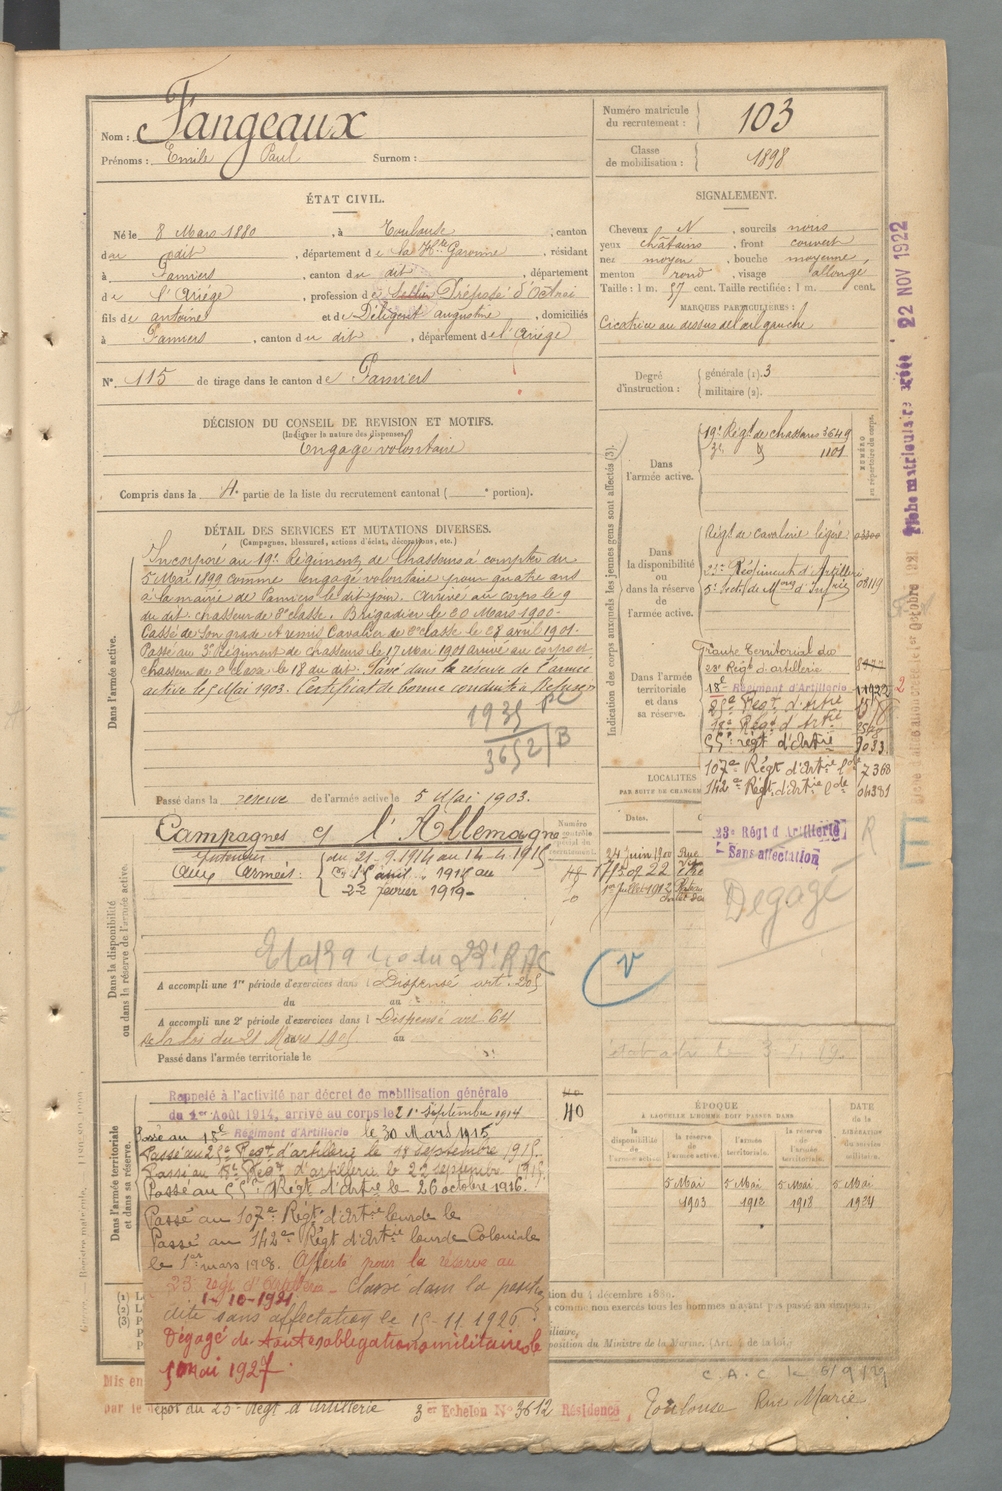 Nom : Fangeaux
Prénoms : Emile Paul Surnom :
Numéro matricule du recrutement : 103
Classe de mobilisation : 1898
ÉTAT CIVIL.
Né le 8 Mars 1880, à Toulouse, canton
du dit, département de la Hte Garonne, résidant
à Pamiers, canton du dit, département
de l'Ariège, profession de Sellier Préposé d'Octroi
fils de antoine et de Déligent augustine, domiciliés
à Pamiers, canton du dit, département de l'Ariège
N°. 115 de tirage dans le canton de Pamiers
SIGNALEMENT.
Cheveux N, sourcils noirs
yeux châtains, front couvert
nez moyen, bouche moyenne,
menton rond, visage allongé
Taille : 1 m. 57 cent. Taille rectifiée : 1 m. cent.
MARQUES PARTICULIÈRES :
Cicatrice au dessus de l'œil gauche
Degré d'instruction : générale (1). 3
militaire (2).
DÉCISION DU CONSEIL DE REVISION ET MOTIFS.
(Indiquer la nature des dispenses.)
Engagé volontaire
Compris dans la 4e partie de la liste du recrutement cantonal ( portion).
DÉTAIL DES SERVICES ET MUTATIONS DIVERSES.
(Campagnes, blessures, actions d'éclat, décorations, etc.)
Dans l'armée active.
Incorporé au 19e Régiment de Chasseurs à compter du
5 Mai 1899 comme engagé volontaire pour quatre ans
à la mairie de Pamiers le dit jour. Arrivé au corps le 9
du dit. chasseur de 2e classe. Brigadier le 20 Mars 1900.
Cassé de son grade et remis Cavalier de 2e classe le 28 avril 1901.
Passé au 3e Régiment de chasseurs le 17 Mai 1901 arrivé au corps et
chasseur de 2e classe le 18 du dit. Passé dans la réserve de l'armée
active le 5 Mai 1903. Certificat de bonne conduite Refusé
1935
3652/B
Passé dans la reserve de l'armée active le 5 Mai 1903.
Dans la disponibilité ou dans la réserve de l'armée active
Campagnes c/ l'Allemagne
Intérieur du 21-9-1914 au 14-4-1915
Aux Armées : 15 avril 1915 au
22 février 1919
A accompli une 1re période d'exercices dans Dispensé art. 205
du au
A accompli une 2e période d'exercices dans l Dispensé art 64
de la loi du 21 Mars 1905 au
Passé dans l'armée territoriale le
Dans l'armée territoriale et dans sa réserve.
Rappelé à l'activité par décret de mobilisation générale
du 1er Août 1914, arrivé au corps le 21 Septembre 1914
Passé au 18e Régiment d'Artillerie le 30 Mars 1915
Passé au 25e Régt d'artillerie le 18 septembre 1915.
Passé au 18e Régt d'artillerie le 22 septembre 1915
Passé au 55e Régt d'Artie le 26 octobre 1916.
Passé au 107e Régt d'Artie lourde le
Passé au 142e Régt d'Artie lourde Coloniale
le 1er mars 1918. Affecté pour la réserve au
23 regt d'artillerie
1-10-1921
Classé dans la position
dite sans affectation le 15-11-1926
Dégagé de toutes obligations militaires le
5 Mai 1927.
Indication des corps auxquels les jeunes gens sont affectés (3).
NUMÉRO au répertoire du corps.
Dans l'armée active.
19e Régt de chasseurs 3649
3e d° 1101
Dans la disponibilité ou dans la réserve de l'armée active.
Régt de cavalerie légère
23e Régiment d'Artillerie
5e Section de Mons d'Infrie 08119
Dans l'armée territoriale et dans sa réserve.
Groupe Territorial du
23e Régt d'artillerie
18e Régiment d'Artillerie
25e Régt d'Artie
18e Régt d'Artie
55e régt d'Artie 9033
107e Régt d'Artie lde 7368
142e Régt d'Artie lde 04381
LOCALITÉS
PAR SUITE DE CHANGEM
Dates.
24 Juin 1900 Rue
1er Juillet 1912
23e Régt d'Artillerie
Sans affectation
Degagé
R
V
40
ÉPOQUE
À LAQUELLE L'HOMME DOIT PASSER DANS
la disponibilité de l'armée active
la réserve de l'armée active.
l'armée territoriale.
la réserve de l'armée territoriale.
DATE de la LIBÉRATION du service
5 Mai 5 Mai 5 Mai 5 Mai
1903 1912 1918 1924
tion du 4 décembre 1889.
position du Ministre de la Marine. (Art. de la loi.)
C.A.C le 5/9/29
Mis en
par le dépôt du 23e Régt d'Artillerie 3er Echelon N° 3612 Résidence, Toulouse Rue Marie
Fiche matriculaire créée 22 NOV 1922